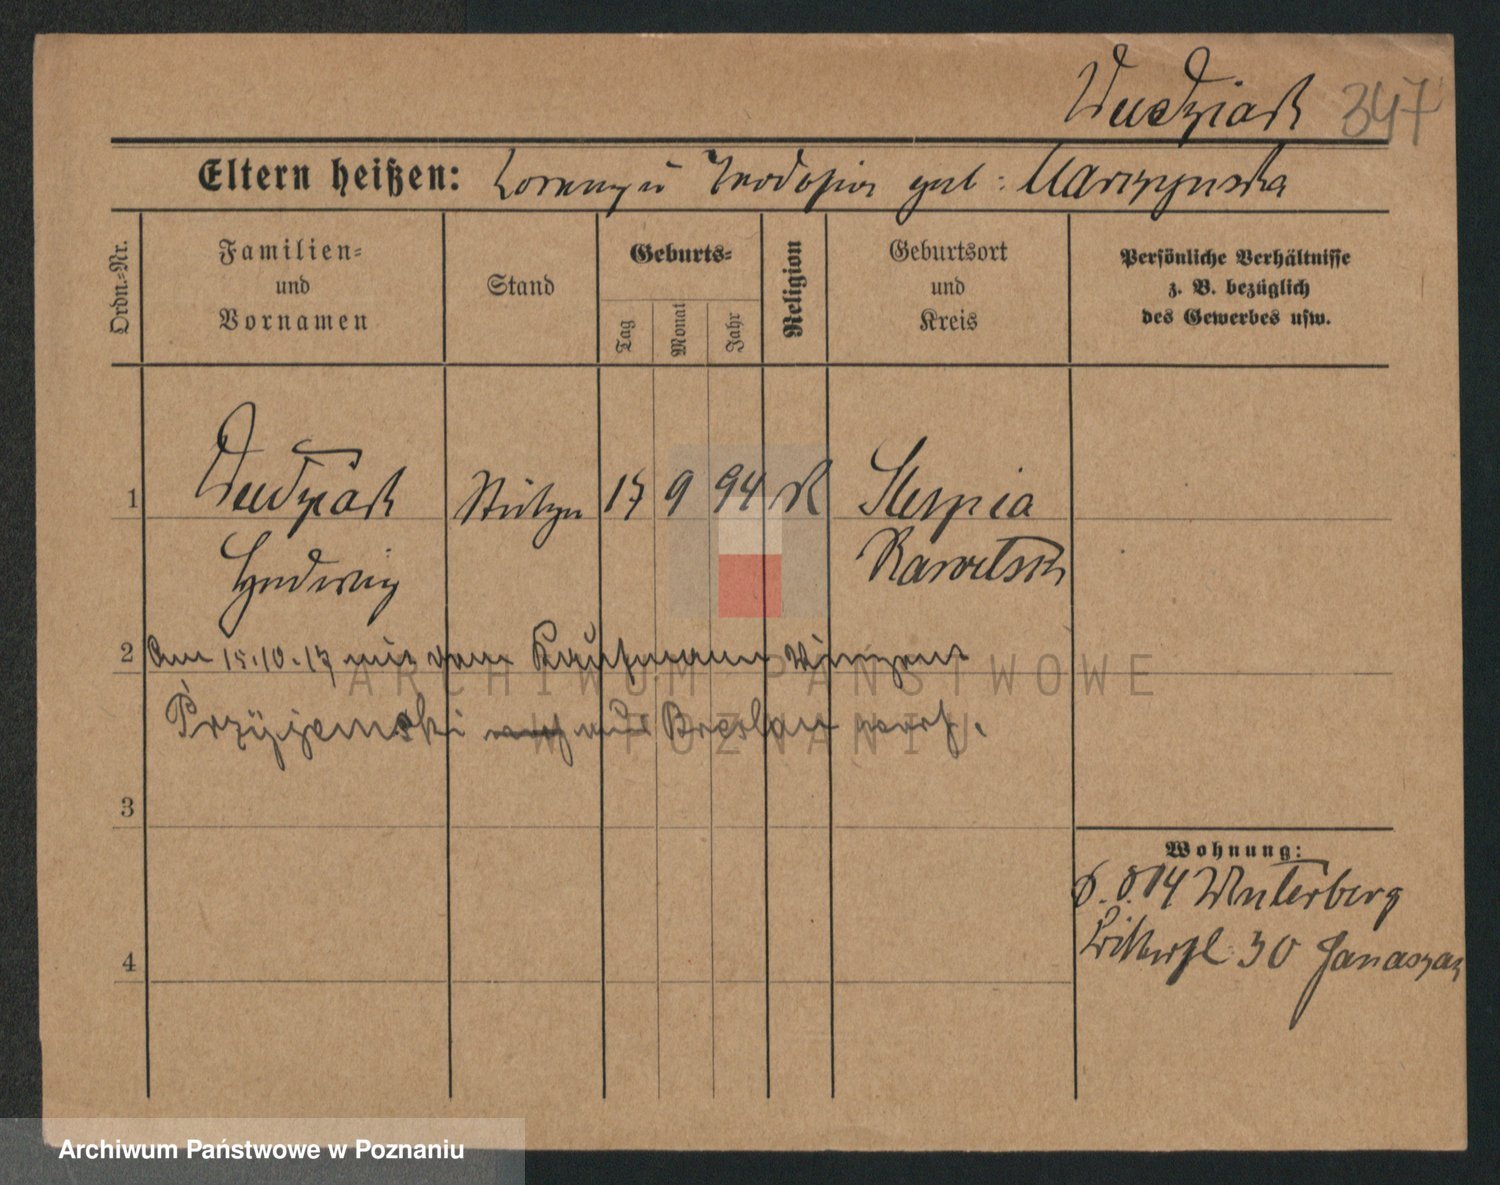 Dudziak 347
Eltern heißen: Lorenz u Teodosia geb: Marszynska
Ordn.-Nr.
Familien-
und
Vornamen
Stand
Geburts-
Tag
Monat
Jahr
Religion
Geburtsort
und
Kreis
Persönliche Verhältnisse
z. B. bezüglich
des Gewerbes usw.
1 Dudziak Stütze 17 9 94 K Slupia
Hedwig Rawitsch
2 Am 15.10.17 mit dem Kaufmann Vinzent
Przyjemski aus Breslau verh.
3
Wohnung:
14 Winterberg
30
4
ARCHIWUM PAŃSTWOWE
W POZNANIU
Archiwum Państwowe w Poznaniu